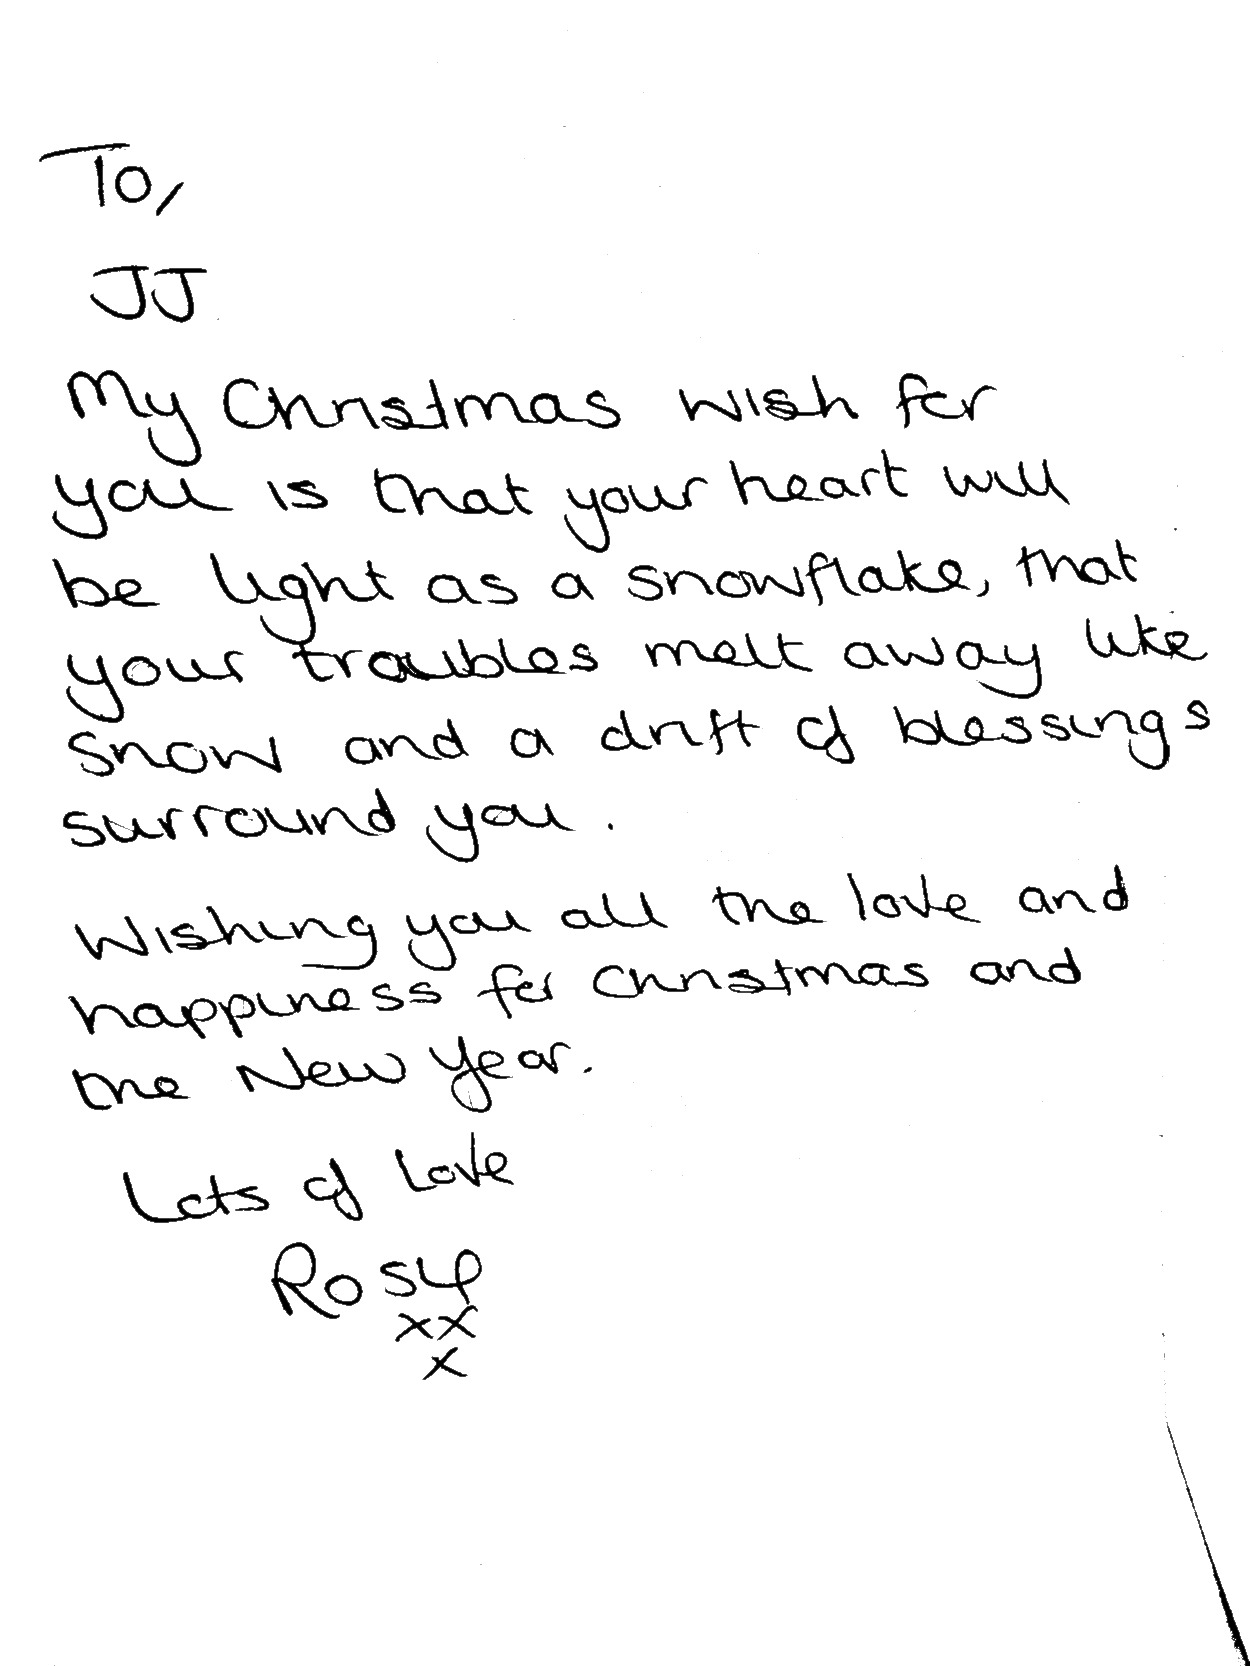 To,
JJ
My Christmas wish for
you is that your heart will
be light as a snowflake, that
your troubles melt away like
snow and a drift of blessings
surround you.
Wishing you all the love and
happiness for Christmas and
the New Year.
Lots of Love
Rosy
xx
x